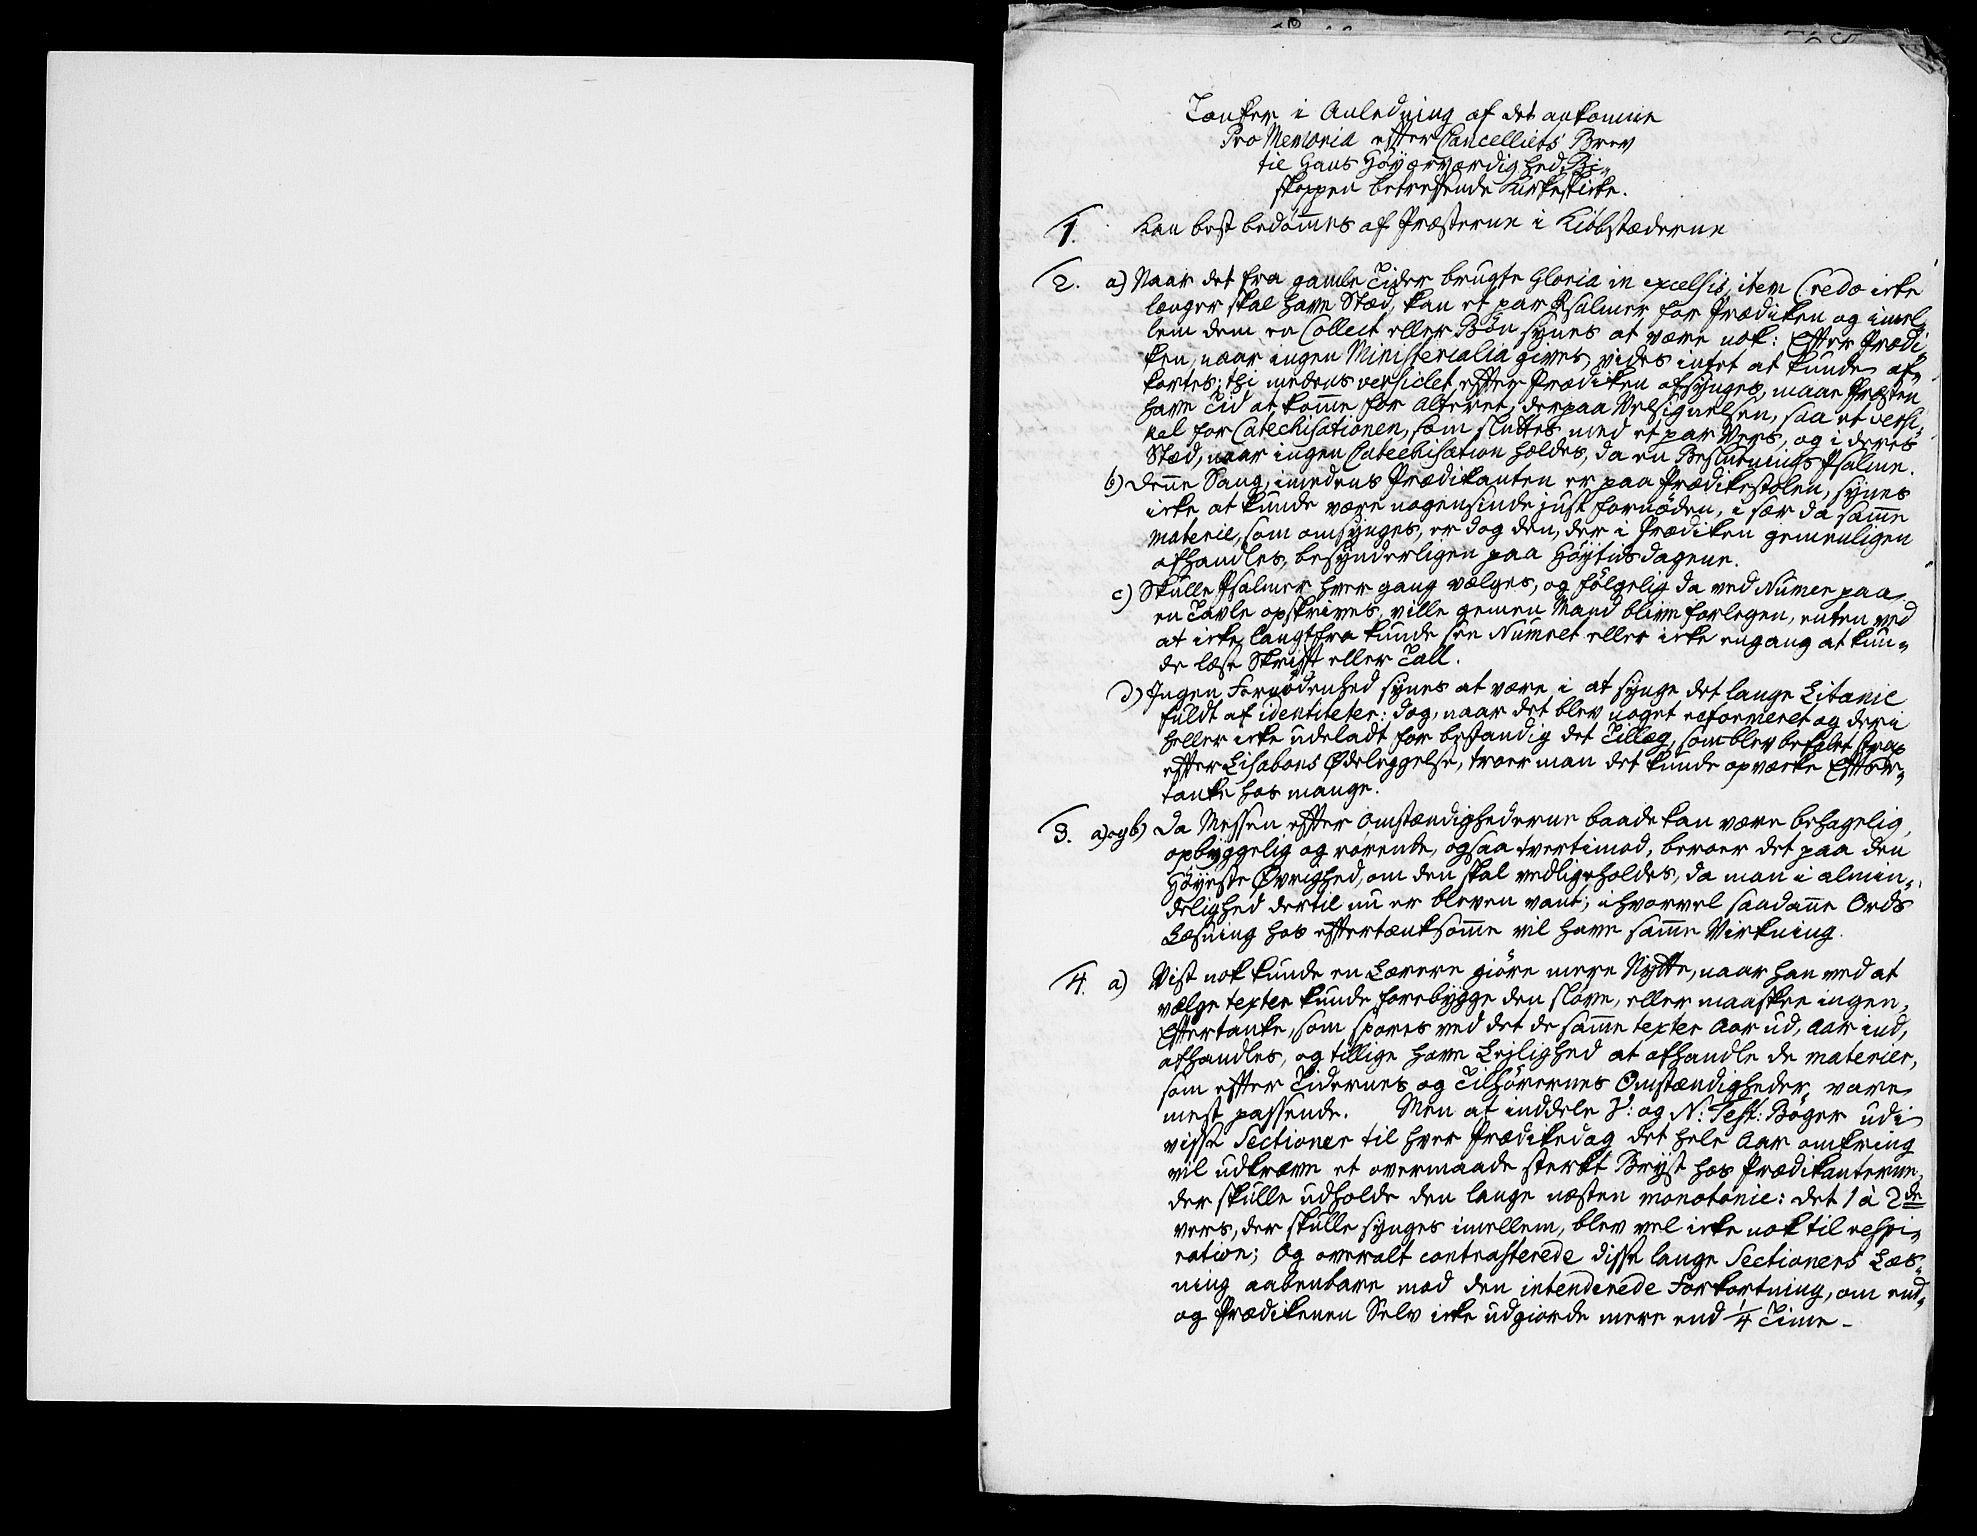 Tanker i Anledning af det ankomne
Pro Memoria efter Cancelliets Brev
til Hans Höyærværdighed Bi-
skoppen betreffende Kirkeskicke.
1. Kan best bedömes af Præsterne i Kiöbstæderne
2. a) Naar det fra gamle Tider brugte Gloria in excelsis, item Credo icke
længer skal have Stæd, kan et par Psalmer for Prædiken og imel-
lem dem en Collect eller Bön synes at være nok: Efter Prædi-
ken, naar ingen Ministerialia gives, vides intet at kunde af-
kortes; thi medens versiclet efter Prædiken afsynges, maae Præsten
have Tid at komme for Alteret; derpaa Velsignelsen, saa et versi-
kel for Catechisationen, som sluttes med et par Vers, og i deres
Stæd, naar ingen Catechisation holdes, da en Besluttnings Psalme.
b) Denne Sang, imedens Prædikanten er paa Prædikestolen, synes
icke at kunde være nogensinde just fornöden, i sær da samme
materie, som omsynges, er dog den, der i Prædiken gemenligen
afhandles, besynderligen paa Höytidsdagene.
c) Skulle Psalmer hver gang vælges, og fölgelig da ved Numer paa
en Tavle opskrives, ville gemen Mand blive forlegen, enten ved
at icke langt fra kunde see Numret eller icke engang at kun-
de læse Skrift eller Tall.
d) Ingen Fornödenhed synes at være i at synge det lange Litanie
fuldt af identiteter: dog, naar det blev noget reformeret og deri
heller icke udeladt for bestandig det Tillæg, som blev befalet strax
efter Lisabons Ödeleggelse, troer man det kunde opvæcke Efter-
tanke hos mange.
3. a) og b) Da Messen efter Omstændighederne baade kan være behagelig,
opbyggelig og rörende, ogsaa tvertimod, beroer det paa den
Höyeste Övrighed, om den skal vedligeholdes, da man i almin-
delighed dertil nu er bleven vant; ihvorvel saadanne Ords
Læsning hos eftertænksomme vil have samme Virkning.
4. a) Vist nok kunde en Lærere giöre mere Nytte, naar han ved at
vælge texter kunde forebygge den slöve, eller maaskee ingen
Eftertanke, som spores ved det de samme texter Aar ud, Aar ind,
afhandles, og tillige have Lejlighed at afhandle de materier,
som efter Tidernes og Tilhörernes Omstændigheder vare
mest passende. Men at inddele V: og N: Test: Böger udi
visse Sectioner til hver Prædikedag det hele Aar omkring
vil udkræve et overmaade sterkt Bryst hos Prædikanterne,
der skulle udholde den lange næsten monotonie: det 1 à 2de
vers, der skulle synges imellem, blev vel icke nok til respi-
ration; Og overalt contrasterede disse lange Sectioners Læs-
ning aabenbare mod den intenderede Forkortning, om end-
og Prædikenen Selv icke udgiorde mere end 1/4 Time -